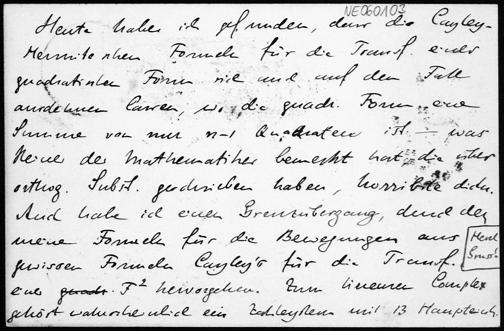 NE060103
Heute habe ich gefunden, dass die Cayley-
Hermiteschen Formeln für die Transf. einer
quadratischen Form sich auch auf den Fall
ausdehnen lassen, wo die quadr. Form eine
Summe von nur n-1 Quadraten ist. — was
keiner der Mathematiker bemerkt hat, die über
orthog. Subst. geschrieben haben, horribile dictu.
Auch habe ich einen Grenzübergang, durch den
meine Formeln für die Bewegungen aus
gewissen Formeln Cayley's für die Transf.
einer F² hervorgehen. Zum linearen Complex
gehört wahrscheinlich ein Zahlsystem mit 13 Haupteinh.